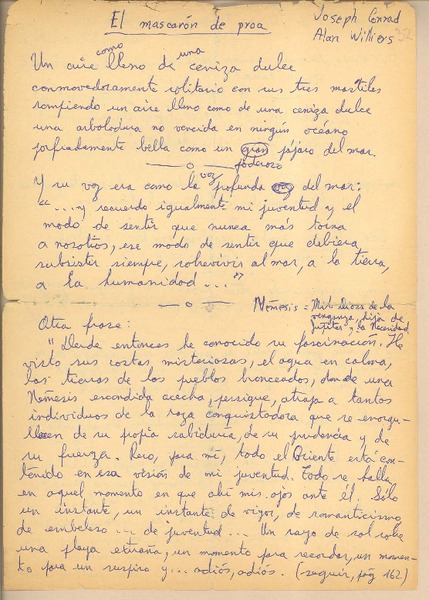 El mascarón de proa
Joseph Conrad
Alan Williers
32
Un aire como lleno de una ceniza dulce
conmovedoramente solitario con sus tres mástiles
rompiendo un aire lleno como de una ceniza dulce
una arboladura no vencida en ningún océano
porfiadamente bella como un gran pájaro del mar.
poderoso
Y su voz era como la voz profunda del mar:
"...y recuerdo igualmente mi juventud y el
modo de sentir que nunca más torna
a nosotros, ese modo de sentir que debiera
subsistir siempre, sobrevivir al mar, a la tierra,
a la humanidad..."
Némesis = Mit. Diosa de la
venganza, hija de
Júpiter y la Necesidad
Otra frase:
"Desde entonces he conocido su fascinación. He
visto sus costas misteriosas, el agua en calma,
las tierras de los pueblos bronceados, donde una
Némesis escondida acecha, persigue, atrapa a tantos
individuos de la raza conquistadora que se enorgu-
llecen de su propia sabiduría, de su prudencia y de
su fuerza. Pero, para mí, todo el Oriente está con-
tenido en esa visión de mi juventud. Todo se halla
en aquel momento en que abrí mis ojos ante él. Sólo
un instante, un instante de vigor, de romanticismo,
de embeleso ... de juventud ... Un rayo de sol sobre
una playa extraña, un momento para recordar, un momen-
to para un suspiro y... adiós, adiós. (seguir, pág 162)